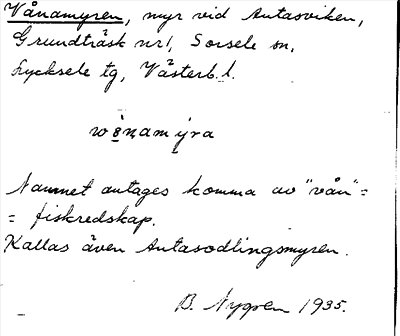 Vånamyren, myr vid Autasviken,
Grundträsk nr 1, Sorsele sn,
Lycksele tg, Västerb. l.
wånamẙra
Namnet antages komma av "vån" =
= fiskredskap.
Kallas även Autasodlingsmyren.
B. Nygren 1935.